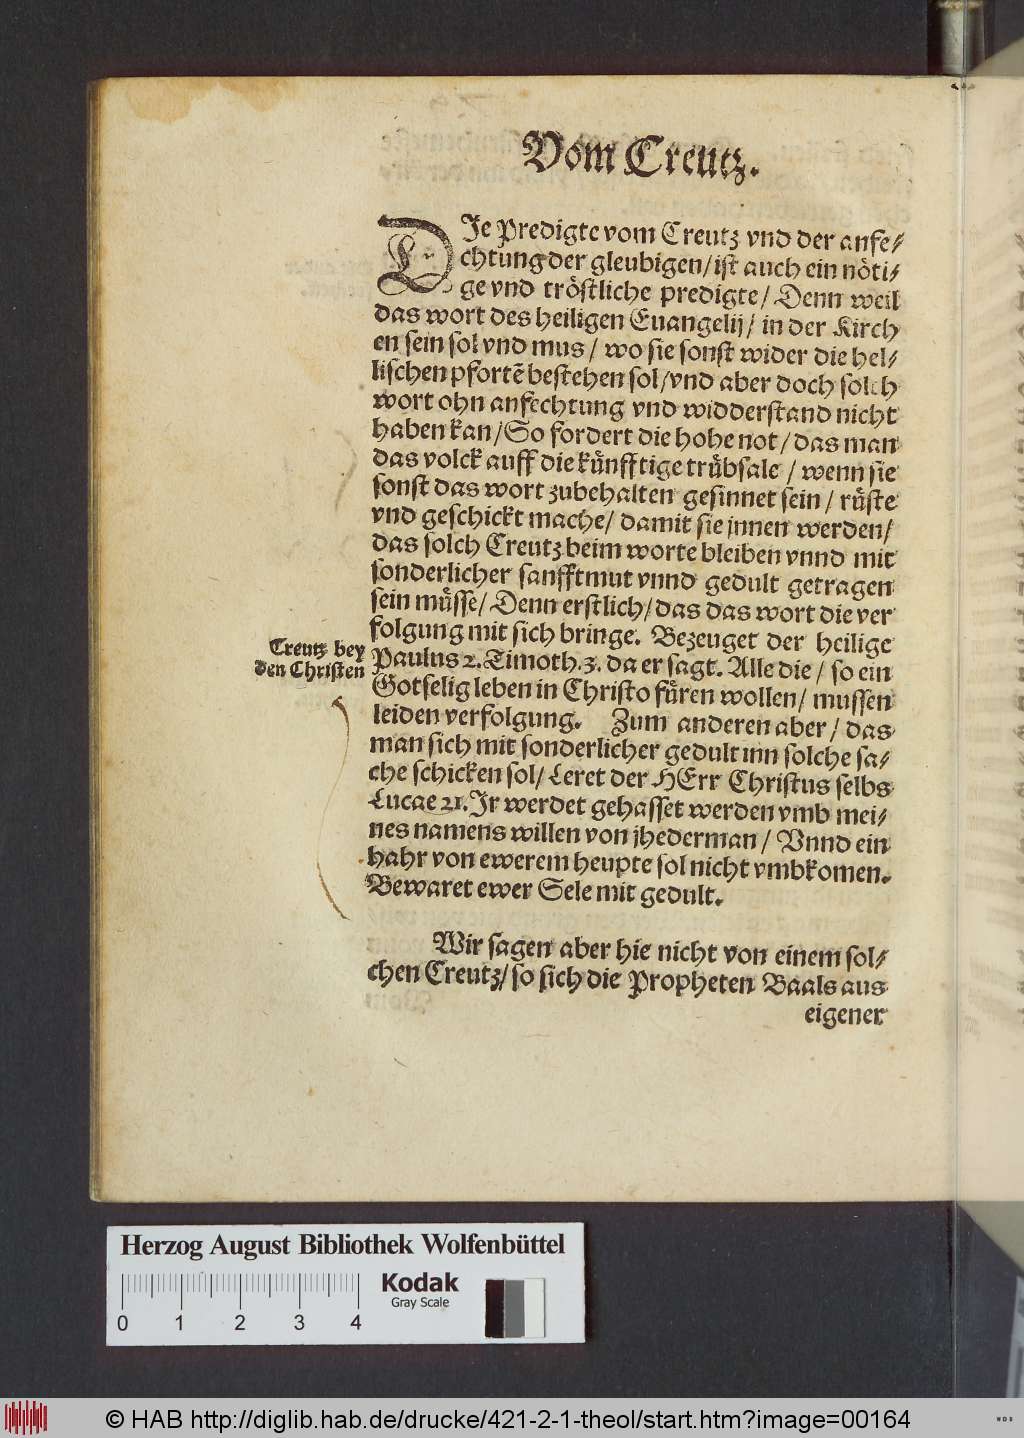 Vom Creutz.
DJe Predigte vom Creutz vnd der anfe/
chtung der gleubigen/ ist auch ein nöti/
ge vnd tröstliche predigte/ Denn weil
das wort des heiligen Euangelij/ in der Kirch
en sein sol vnd mus/ wo sie sonst wider die hel/
lischen pfortē bestehen sol/ vnd aber doch solch
wort ohn anfechtung vnd widderstand nicht
haben kan/ So fordert die hohe not/ das man
das volck auff die künfftige trübsale/ wenn sie
sonst das wort zubehalten gesinnet sein/ rüste
vnd geschickt mache/ damit sie jnnen werden/
das solch Creutz beim worte bleiben vnnd mit
sonderlicher sanfftmut vnnd gedult getragen
sein müsse/ Denn erstlich/ das das wort die ver
folgung mit sich bringe. Bezeuget der heilige
Creutz bey
den Christen
Paulus 2. Timoth. 3. da er sagt. Alle die/ so ein
Gotselig leben in Christo füren wollen/ mussen
leiden verfolgung. Zum anderen aber/ das
man sich mit sonderlicher gedult inn solche sa/
che schicken sol/ Leret der HErr Christus selbs
Lucae 21. Jr werdet gehasset werden vmb mei/
nes namens willen von jhederman/ Vnnd ein
hahr von ewerem heupte sol nicht vmbkomen.
Bewaret ewer Sele mit gedult.
Wir sagen aber hie nicht von einem sol/
chen Creutz/ so sich die Propheten Baals aus
eigener
Herzog August Bibliothek Wolfenbüttel
Kodak
Gray Scale
0 1 2 3 4
© HAB http://diglib.hab.de/drucke/421-2-1-theol/start.htm?image=00164